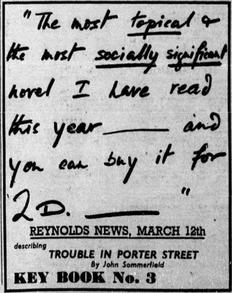 "The most topical &
the most socially significant
novel I have read
this year —— and
you can buy it for
2D. ——"
REYNOLDS NEWS, MARCH 12th
describing
TROUBLE IN PORTER STREET
By John Sommerfield
KEY BOOK No. 3